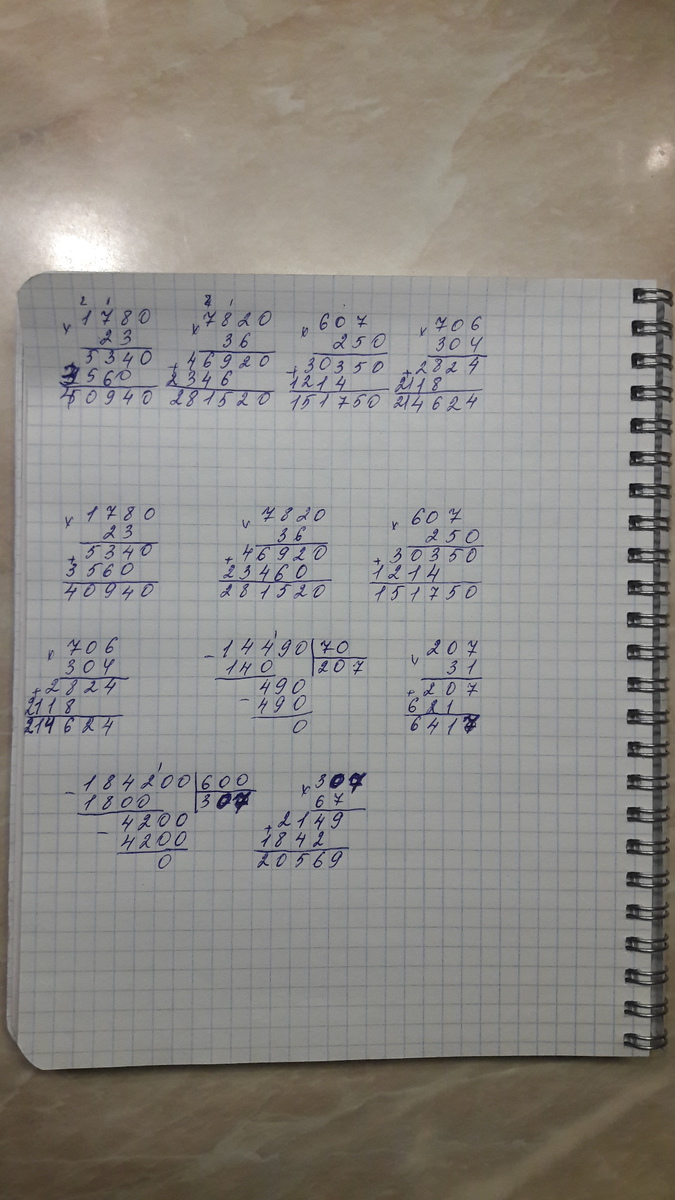 2 1 2 1
× 1780 × 7820 × 607 × 706
23 36 250 304
5340 + 46920 + 30350 + 2824
3560 2346 1214 2118
40940 281520 151750 214624
× 1780 × 7820 × 607
23 36 250
+ 5340 + 46920 + 30350
3560 23460 1214
40940 281520 151750
× 706 - 14490 | 70 × 207
304 140 | 207 31
+ 2824 - 490 + 207
2118 490 621
214624 0 6417
- 184200 | 600 × 307
1800 | 307 67
- 4200 + 2149
4200 1842
0 20569